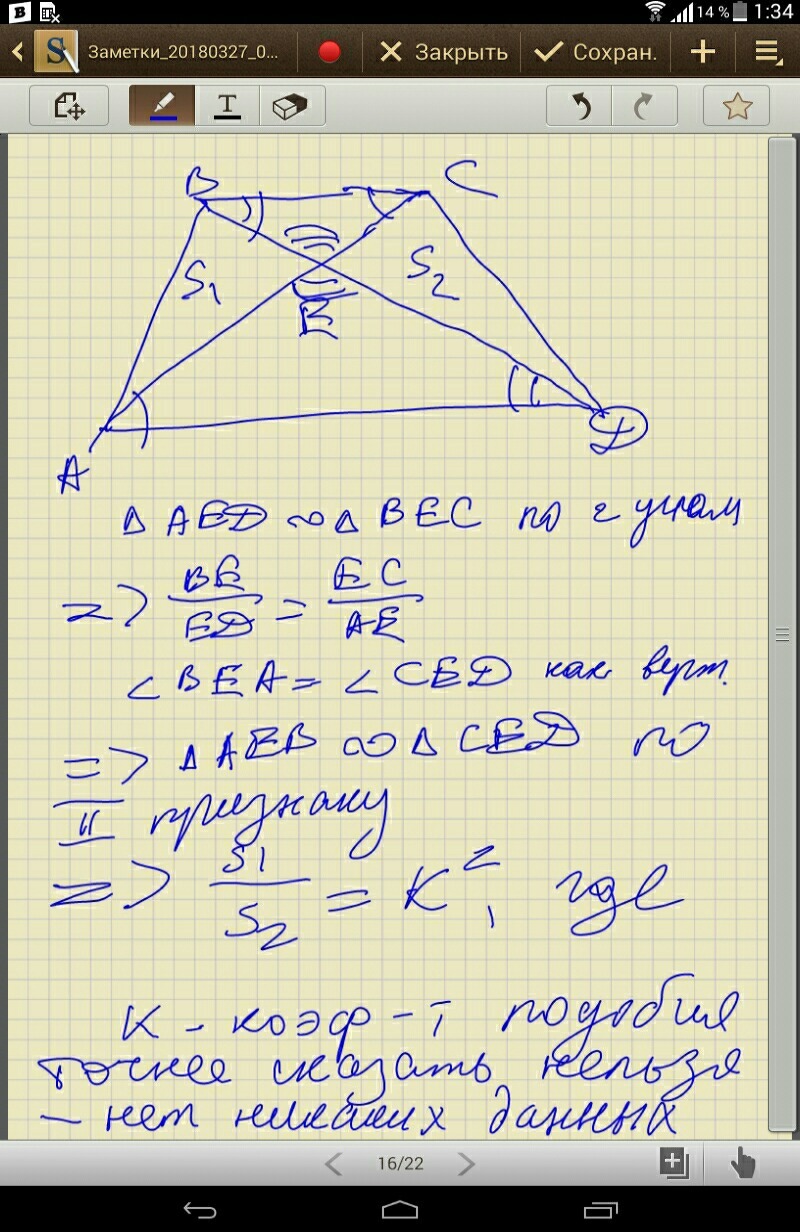 14 % 1:34
Заметки_20180327_0... Закрыть Сохран.
T
B C
S1 S2
E
A D
Δ AED ∞ Δ BEC по 2 углам
=> BE/ED = EC/AE
∠ BEA = ∠ CED как верт.
=> Δ AEB ∞ Δ CED по
II признаку
=> S1/S2 = K², где
K - коэф-т подобия
точнее сказать нельзя
- нет никаких данных
16/22